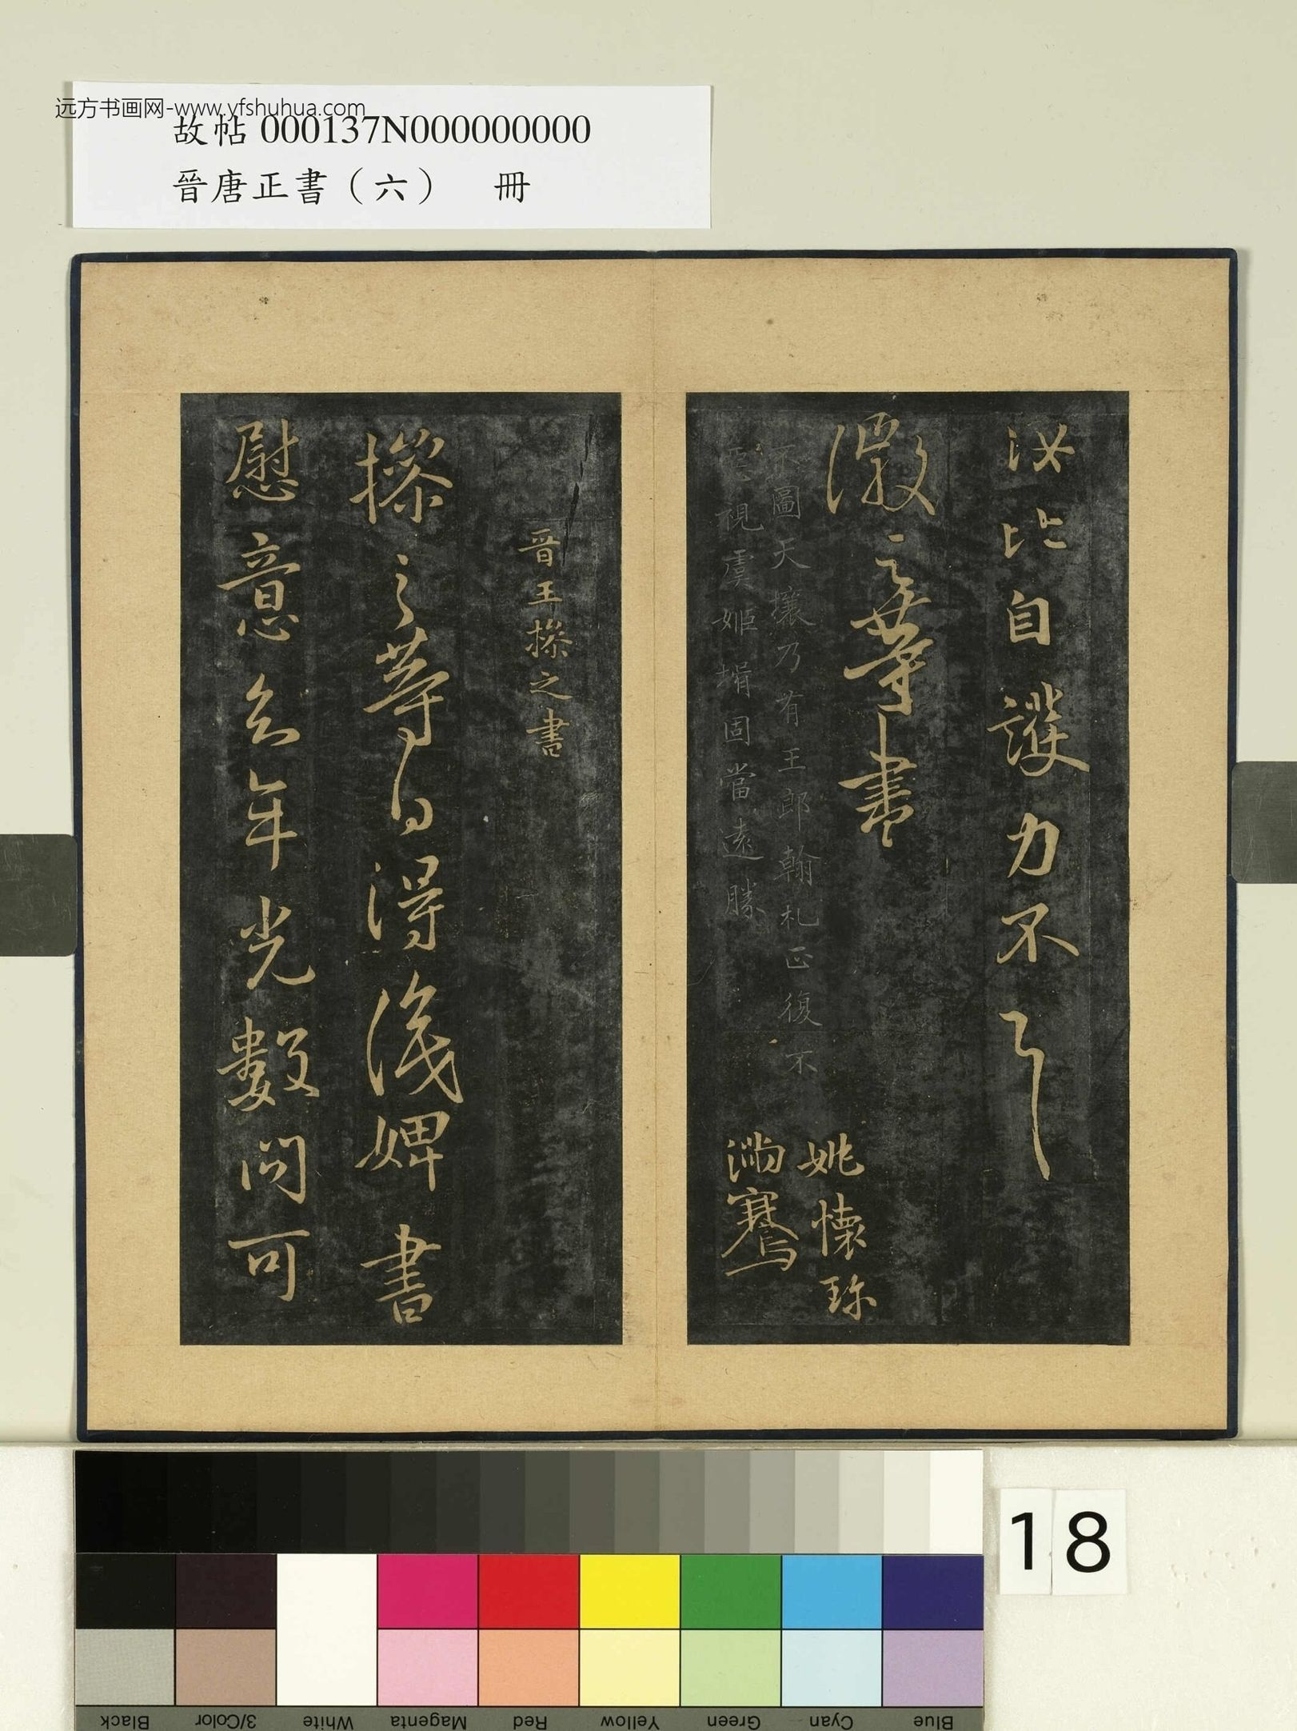 远方书画网-www.yfshuhua.com
故帖 000137N000000000
晉唐正書（六） 冊
汝比自護力不
凝之等書
不圖天壤乃有王郎翰札正復不
惡視虞姬壻固當遠勝
姚懷珍
滿騫
晉王操之書
操之等白得識婢書
慰意去年光數問可
18
Black
3/Color
White
Magenta
Red
Yellow
Green
Cyan
Blue